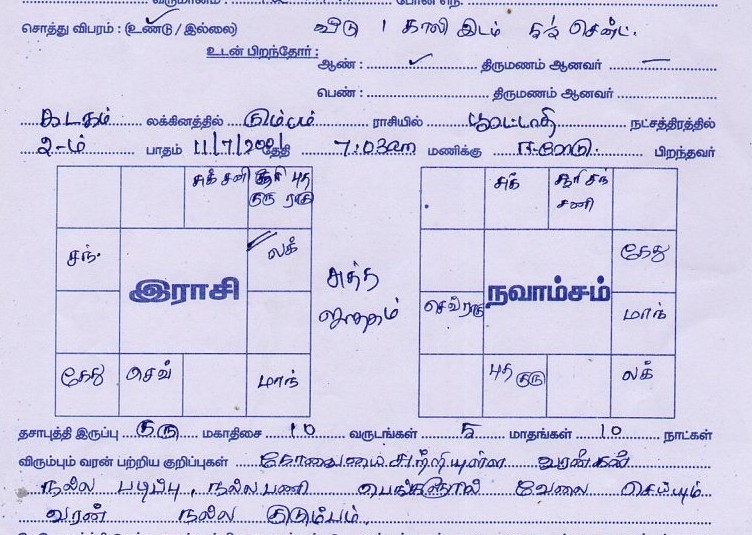 சொத்து விபரம் : (உண்டு / இல்லை) வீடு 1 காலி இடம் 5½ சென்ட்.
உடன் பிறந்தோர் :
ஆண் : ✓ திருமணம் ஆனவர் —
பெண் : திருமணம் ஆனவர்
கடகம் லக்கினத்தில் கும்பம் ராசியில் பூரட்டாதி நட்சத்திரத்தில்
2-ம் பாதம் 11/7/2001 தேதி 7:03am மணிக்கு ஈரோடு. பிறந்தவர்
சுக் சனி சூரி புத
குரு ராகு
சந்.
லக்
இராசி
கேது செவ் மாந்
சுத்த
ஜாதகம்
சுக் சூரி சந்
சனி
கேது
நவாம்சம்
செவ் ராகு மாந்
புத குரு லக்
தசாபுத்தி இருப்பு குரு மகாதிசை 10 வருடங்கள் 5 மாதங்கள் 10 நாட்கள்
விரும்பும் வரன் பற்றிய குறிப்புகள் கோவையை சுற்றியுள்ள வரன்கள்
நல்ல படிப்பு, நல்ல பணி வேலை செய்யும்
வரன் நல்ல குடும்பம்.